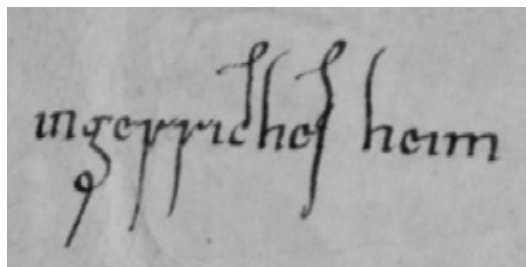 ingerricheſ heim